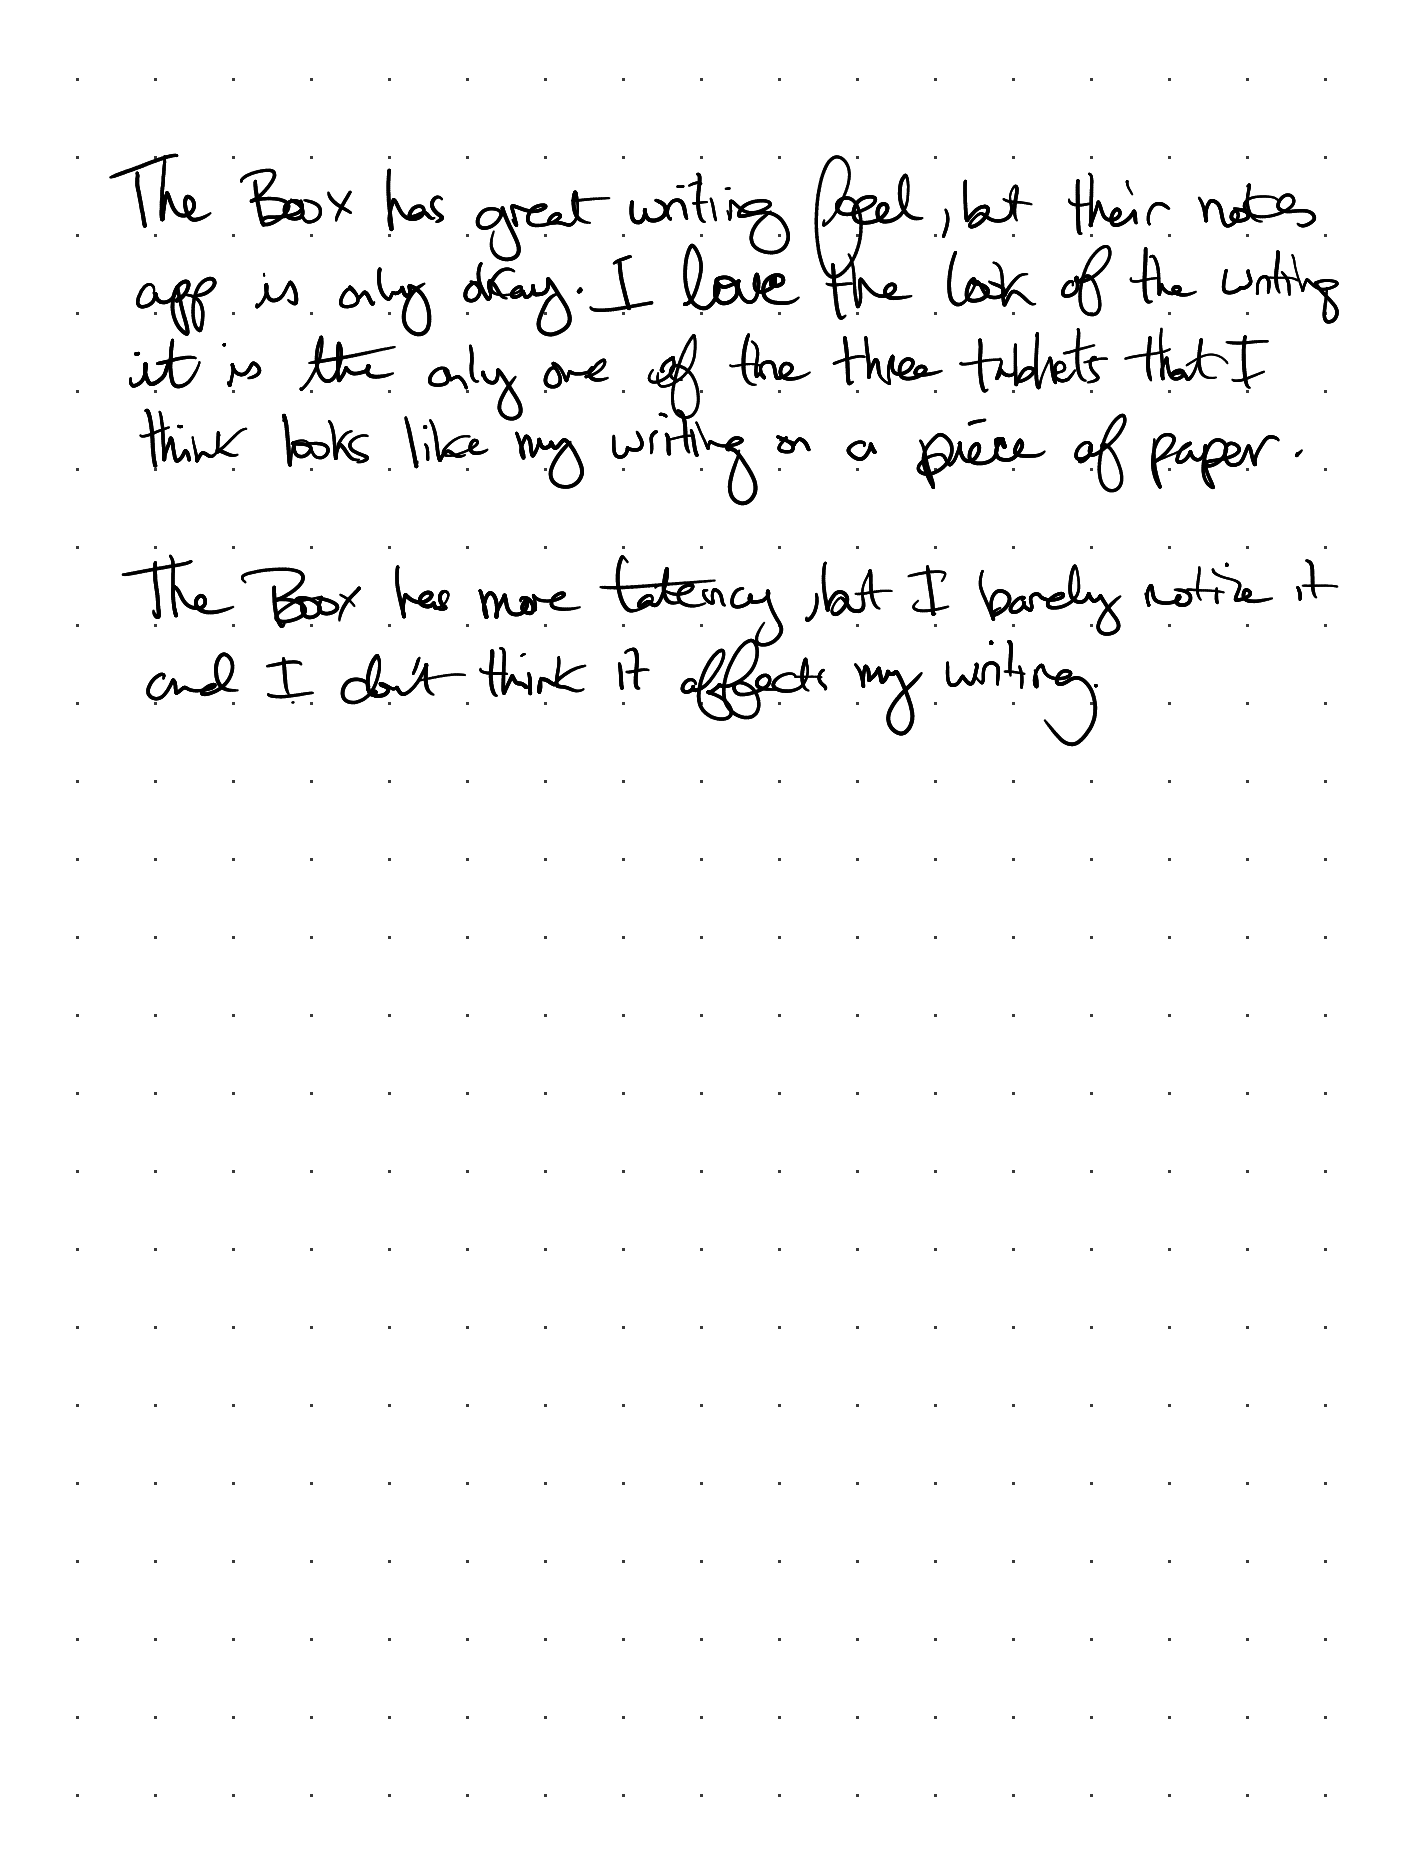 The Boox has great writing feel, but their notes
app is only okay. I love the look of the writing
it is the only one of the three tablets that I
think looks like my writing on a piece of paper.
The Boox has more latency, but I barely notice it
and I don't think it affects my writing.